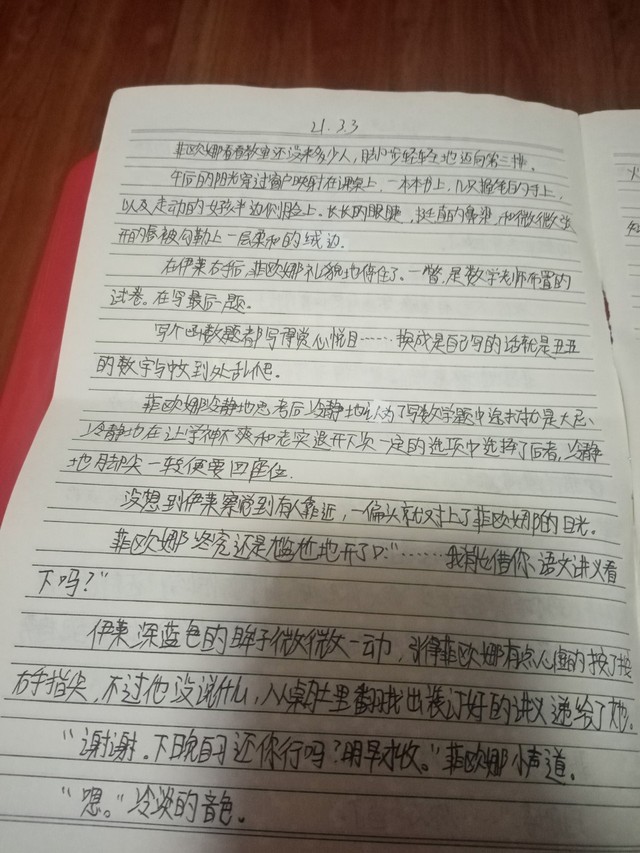 21.23
菲欧娜看看教室还没来多少人，脚步轻轻地迈向第三排。
午后的阳光穿过窗户映射在课桌上，一本本书上，几只握笔的手上，
以及走动的女孩半边侧脸上。长长的眼睫，挺直的鼻梁，和微微张
开的唇被勾勒上一层柔和的绒边。
在伊莱右手后，菲欧娜礼貌地停住了。一瞥，是数学老师布置的
试卷。在写最后一题。
写个函数题都写得赏心悦目……换成是自己写的话就是丑丑
的数字与中文到处乱爬。
菲欧娜冷静地思考后冷静地认为了写数学题中途打扰是大忌、
冷静地在让学神不爽和老实退开下次一定的选项中选择了后者，冷静
地脚尖一转便要回座位。
没想到伊莱察觉到有人靠近，一偏头就对上了菲欧娜的目光。
菲欧娜终究还是尴尬地开了口："……我可以借你语文讲义看
下吗？"
伊莱深蓝色的眸子微微一动，张得菲欧娜有点心虚的按了按
右手指尖，不过他没说什么，从桌肚里翻找出装订好的讲义递给了她。
"谢谢。下晚自习还你行吗？明早收。"菲欧娜小声道。
"嗯。"冷淡的音色。